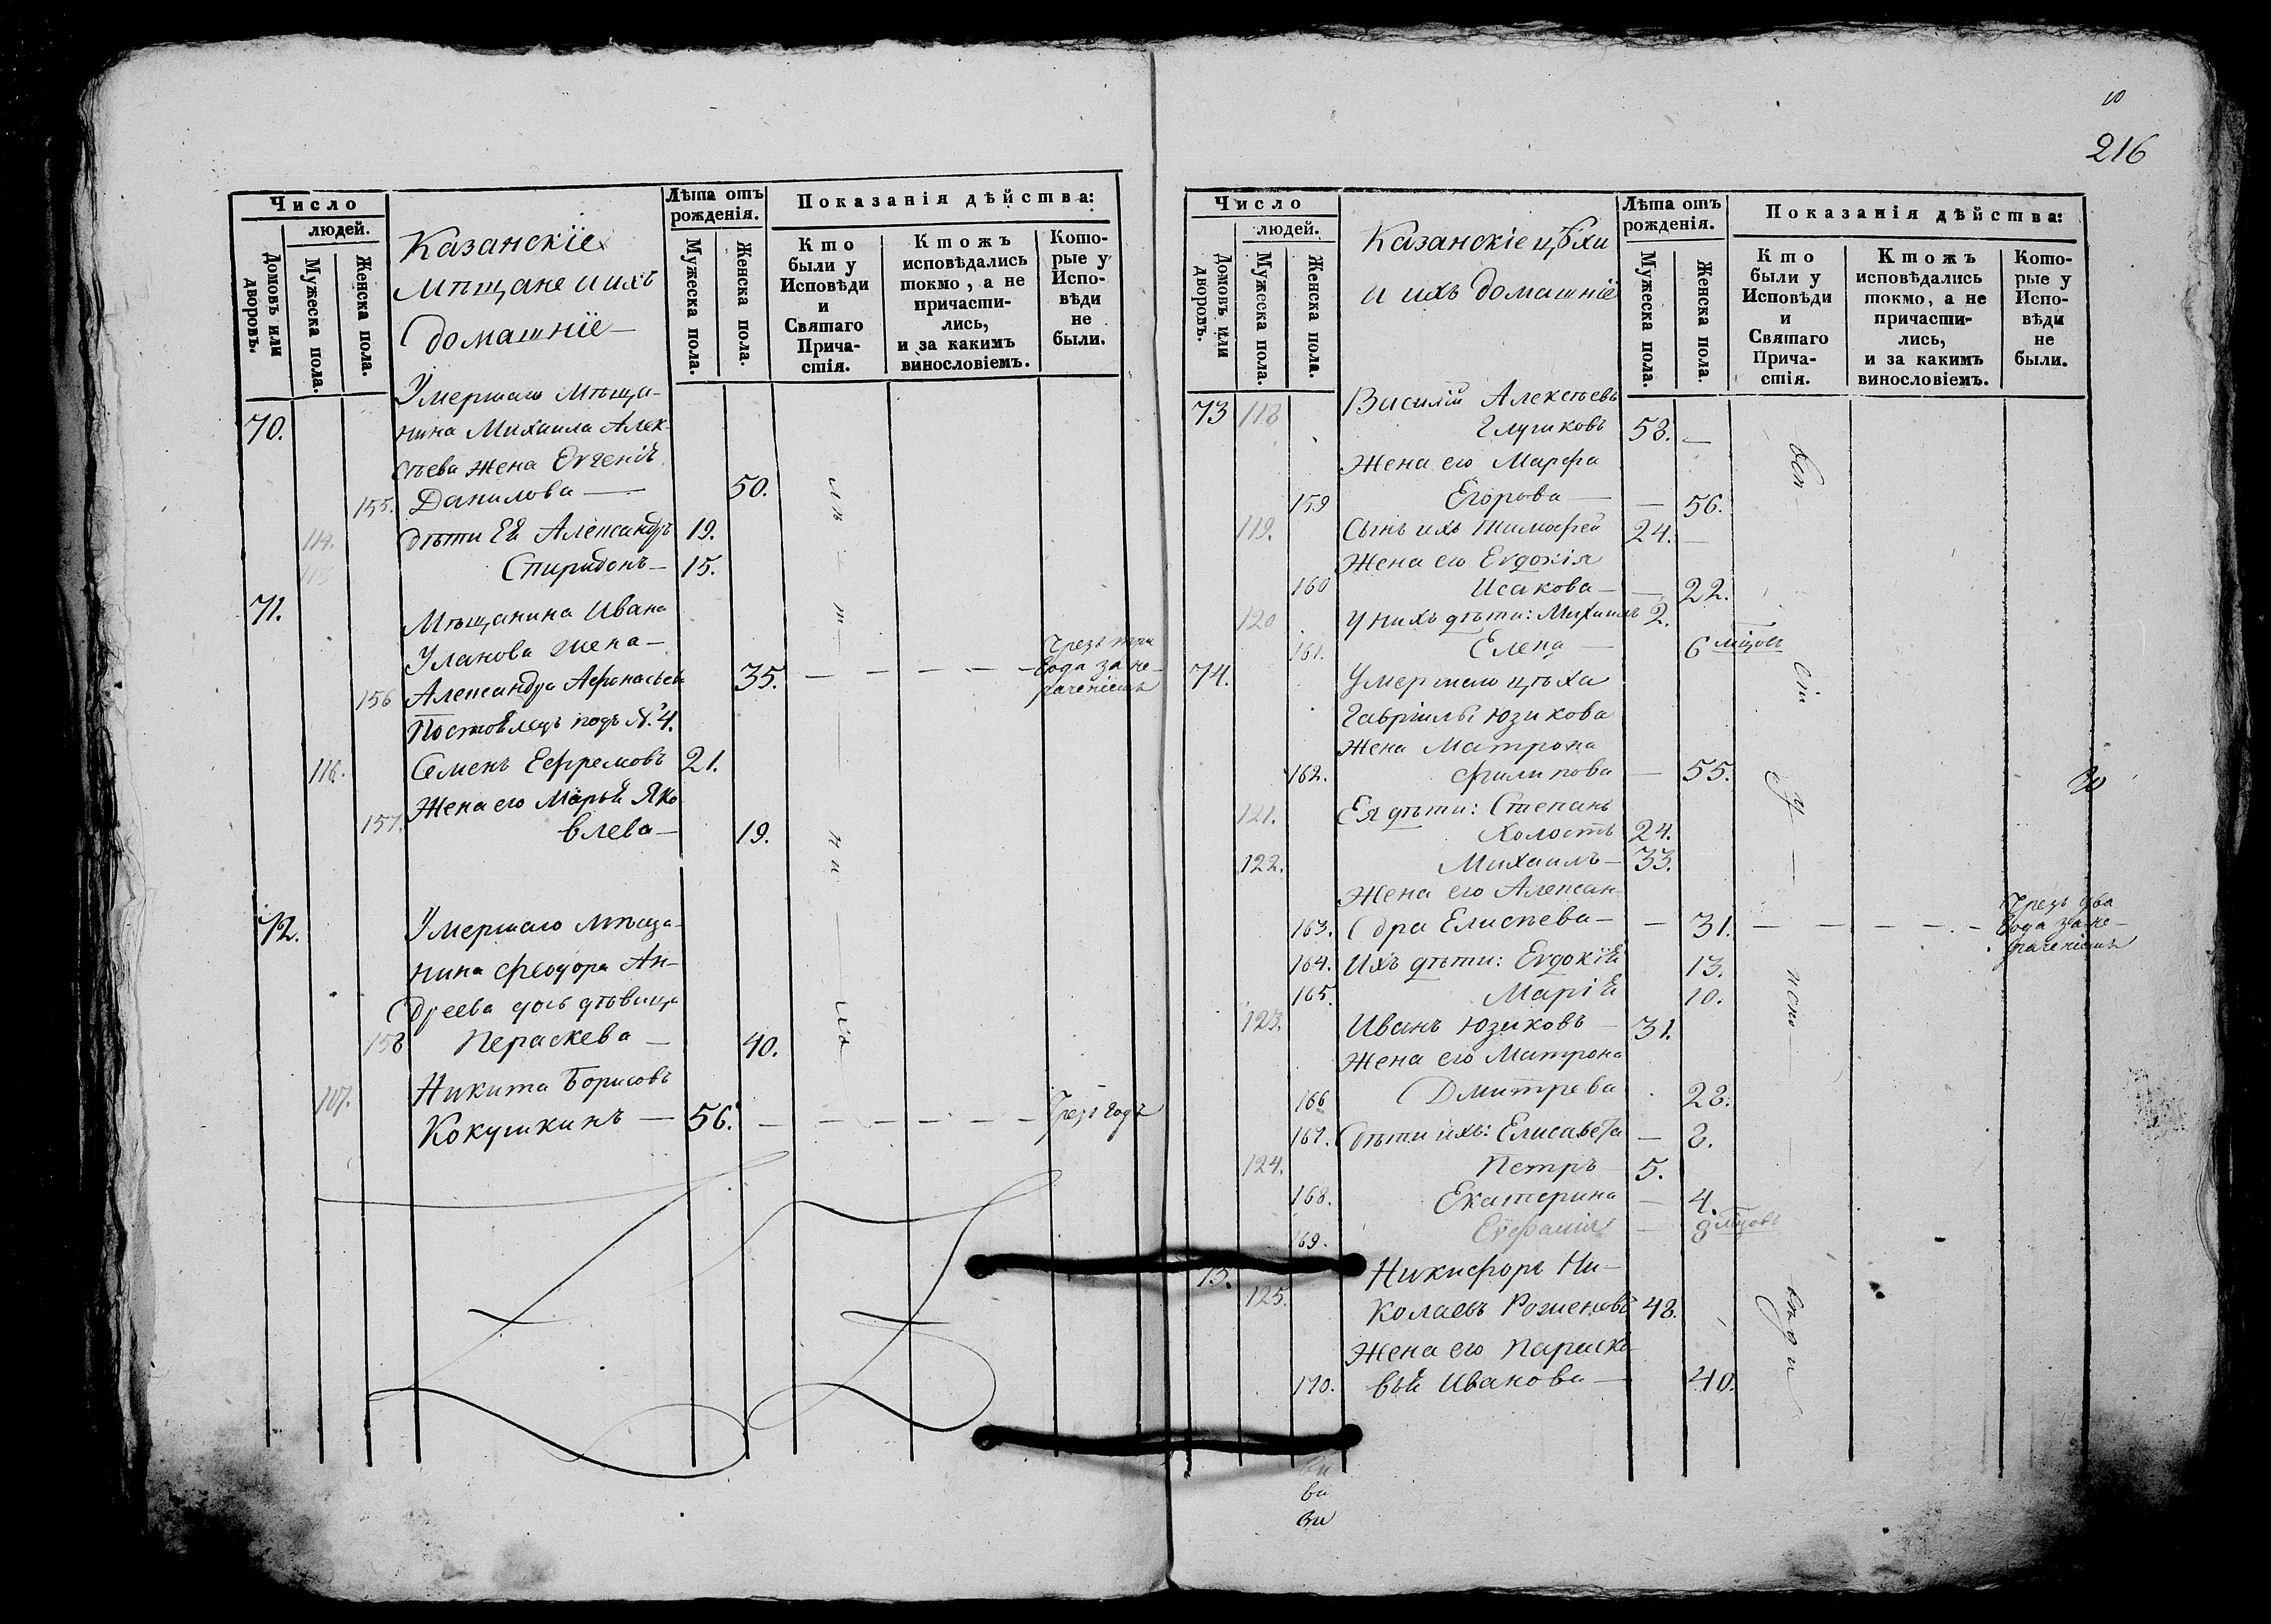 10
216
Число
людей.
Домовъ или дворовъ.
Мужеска пола.
Женска пола.
Казанскіе
мѣщане и ихъ
домашніе
Лѣта отъ рожденія.
Мужеска пола.
Женска пола.
Показанія дѣйства:
Кто были у Исповѣди и Святаго Прича-стія.
Ктожъ исповѣдались токмо, а не причасти-лись, и за какимъ винословіемъ.
Кото-рые у Испо-вѣди не были.
Умершаго Мѣща-
70. нина Михаила Алек
сѣева жена Евгенія
155. Данилова — 50.
114. дѣти Ея Александръ 19.
115 Спиридонъ — 15.
71. Мѣщанина Ивана
Уланова жена — Чрезъ три
года за не-
156 Александра Афонасьева 35. — — — — раченіемъ
Постоялецъ подъ №. 4.
116. Семенъ Ефремовъ 21.
Жена его Марья Яко
157. влева — 19.
72. Умершаго мѣща-
нина Феодора Ан-
дреева дочь дѣвица
158 Пераскева — 40.
107. Никита Борисовъ
Кокушкинъ — 56. — — — — — Чрезъ годъ
Число
людей.
Домовъ или дворовъ.
Мужеска пола.
Женска пола.
Казанскіе цѣхи
и ихъ домашніе
Лѣта отъ рожденія.
Мужеска пола.
Женска пола.
Показанія дѣйства:
Кто были у Исповѣди и Святаго Прича-стія.
Ктожъ исповѣдались токмо, а не причасти-лись, и за какимъ винословіемъ.
Кото-рые у Испо-вѣди не были.
73 118 Василій Алексѣевъ
Глушковъ 58. —
Жена его Марфа
159 Егорова — — 56.
119. Сынъ ихъ Тимофей 24. —
Жена его Евдокія
160 Исакова — — 22.
120 У нихъ дѣти: Михаилъ 2.
161. Елена — 6 мцовъ
74. Умершаго цѣха
Гавріилы Юзикова
Жена Матрона
162. Филипова — 55.
121. Ея дѣти: Степанъ
Холостъ 24.
122. Михаилъ — 33.
Жена его Алексан-
Чрезъ два
163. дра Елисѣева — — 31. — — — — — года за не-
раченіемъ
164. Ихъ дѣти: Евдокія 13.
165. Марія 10.
123. Иванъ Юзиковъ — 31.
Жена его Матрона
166 Дмитрева 28.
167. Дѣти ихъ: Елисавета — 8.
124. Петръ 5.
168. Екатерина — 4.
169. Евфанія — 8 мцовъ
75. Никифоръ Ни-
125. колаевъ Роженовъ 48.
Жена его Параске
170. вья Иванова — 40.